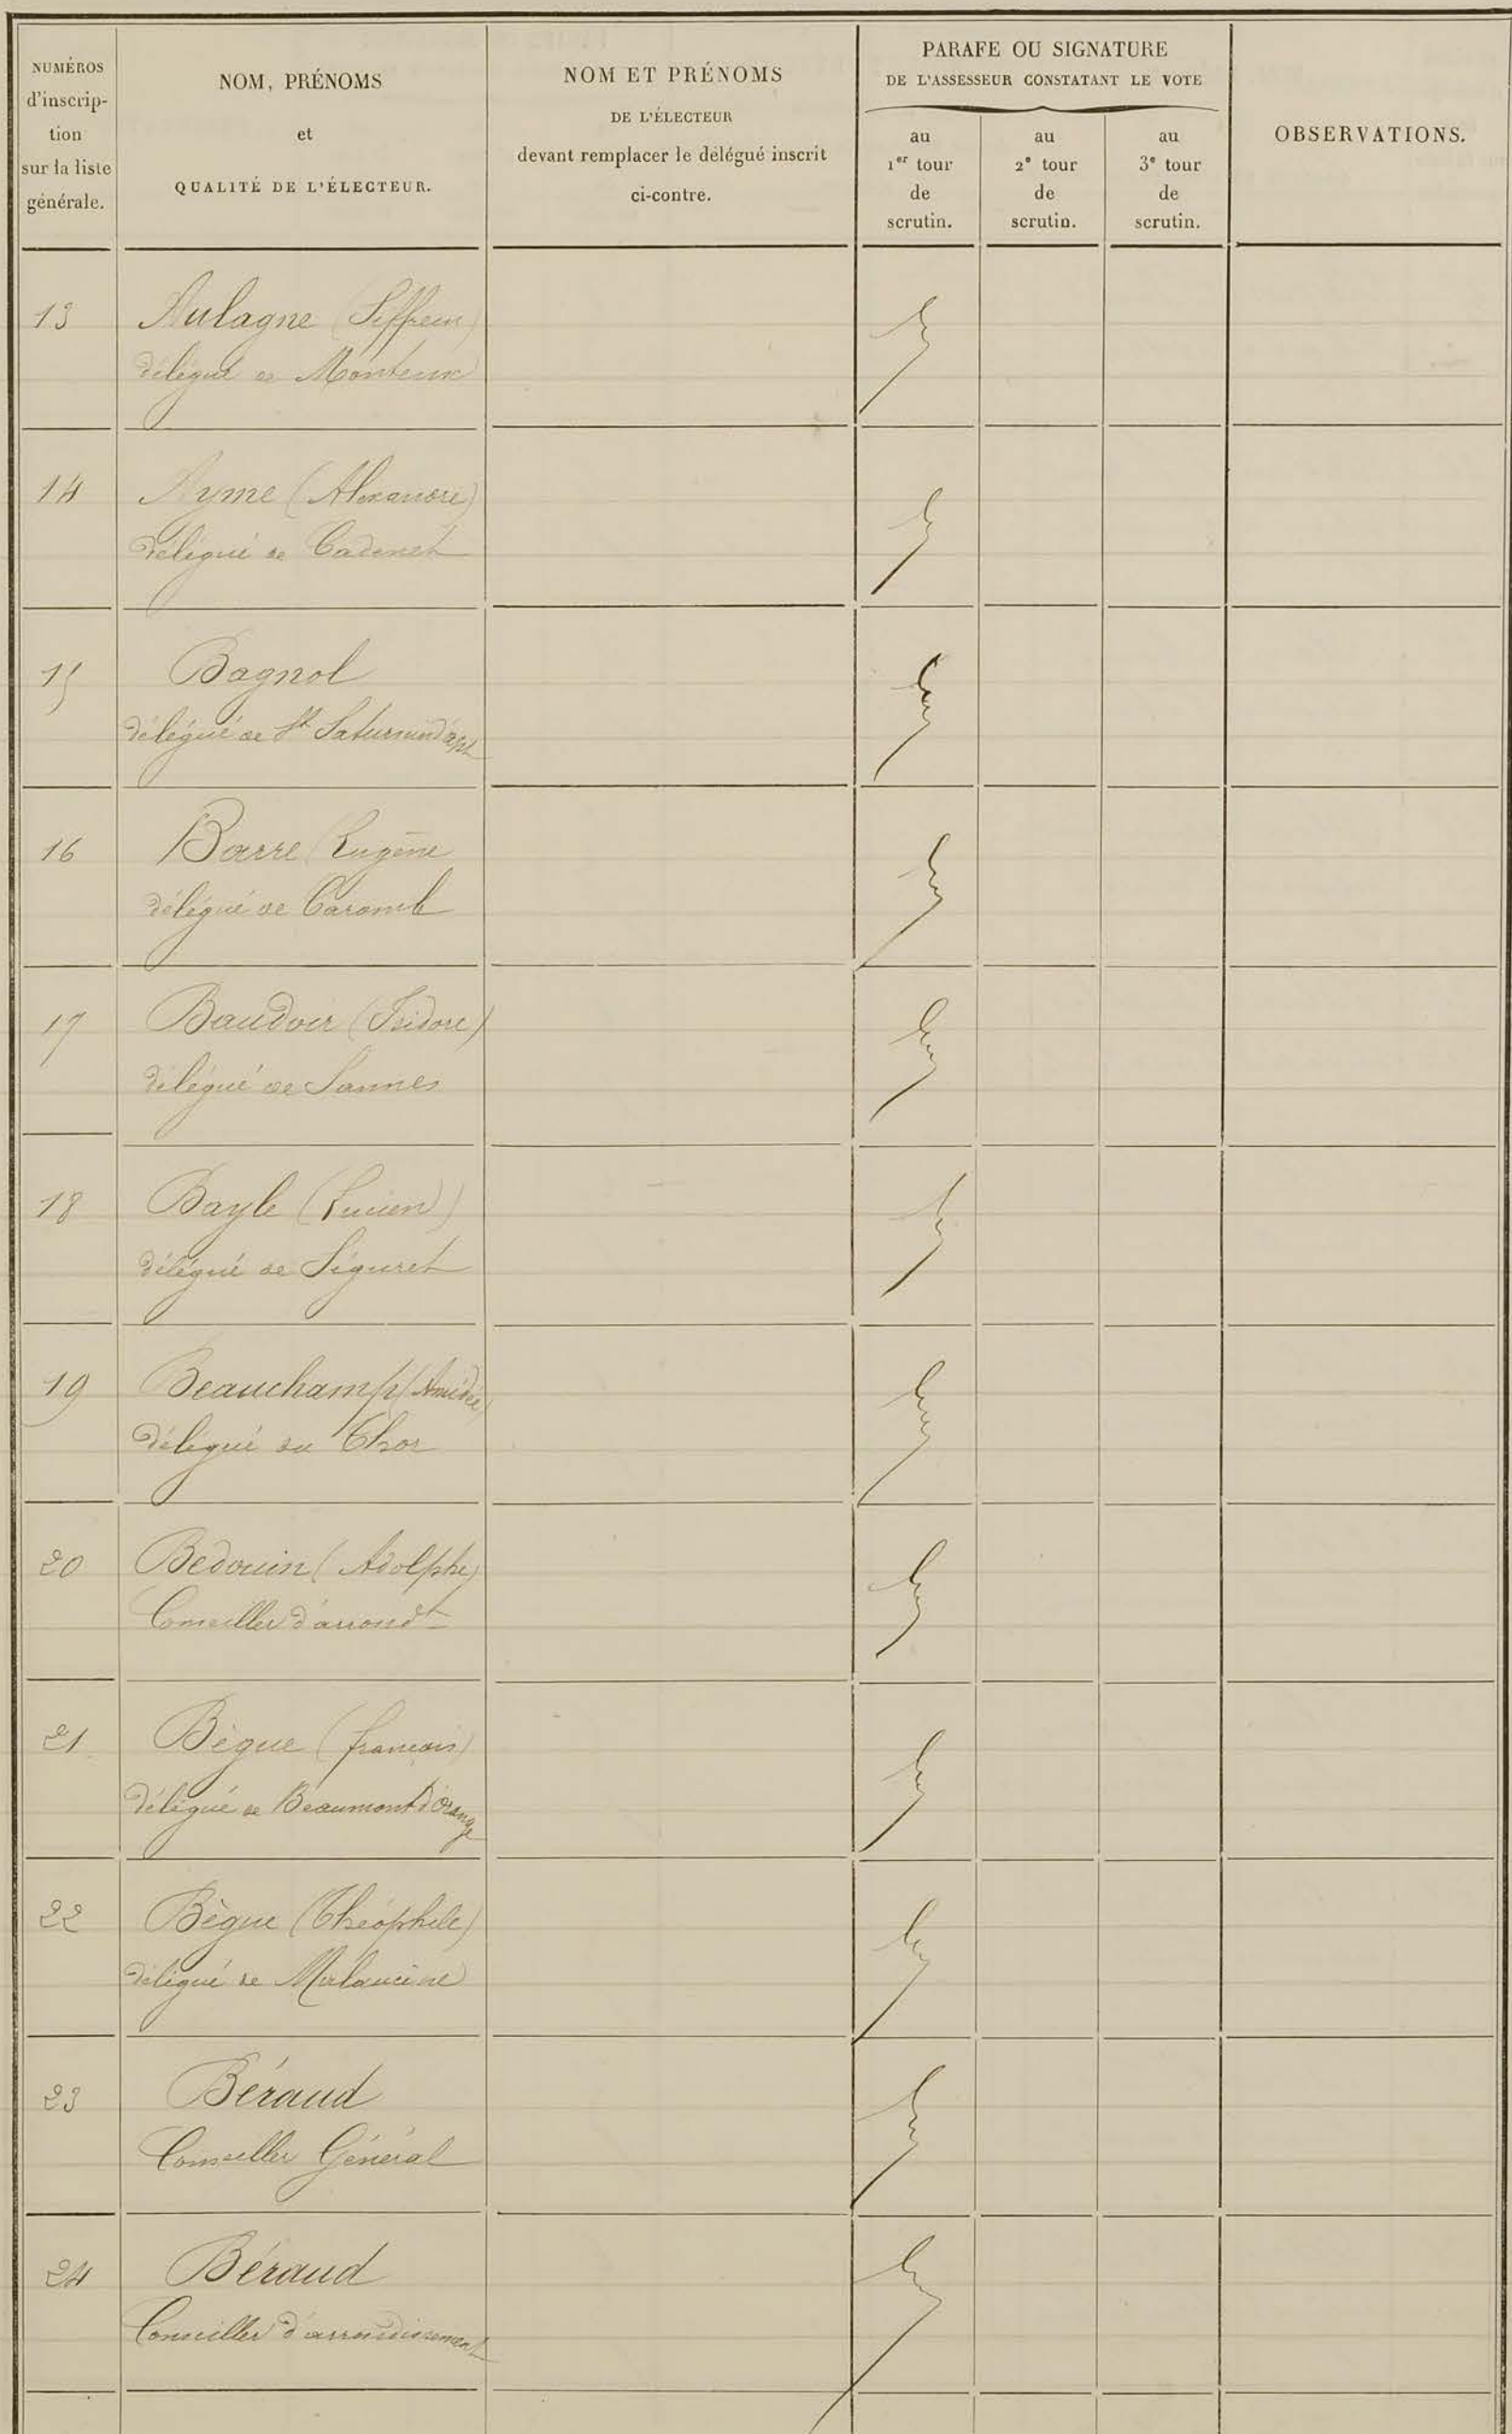 NUMÉROS
d'inscrip-
tion
sur la liste
générale.
NOM, PRÉNOMS
et
QUALITÉ DE L'ÉLECTEUR.
NOM ET PRÉNOMS
DE L'ÉLECTEUR
devant remplacer le délégué inscrit
ci-contre.
PARAFE OU SIGNATURE
DE L'ASSESSEUR CONSTATANT LE VOTE
au
1er tour
de
scrutin.
au
2e tour
de
scrutin.
au
3e tour
de
scrutin.
OBSERVATIONS.
13 Aulagne (Siffrein)
délégué de Monteux
14 Ayme (Alexandre)
délégué de Cadenet
15 Bagnol
délégué de St Saturnin d'apt
16 Barre (Eugène
délégué de Caromb
17 Baudoir (Isidore)
délégué de Sannes
18 Bayle (Lucien)
délégué de Séguret
19 Beauchamp (Amédée)
délégué du Thor
20 Bedouin (Adolphe)
Conseiller d'arrondt
21 Bègue (françois)
délégué de Beaumont d'Orange
22 Bègue (Théophile)
délégué de Malaucène
23 Béraud
Conseiller Général
24 Béraud
Conseiller d'arrondissement